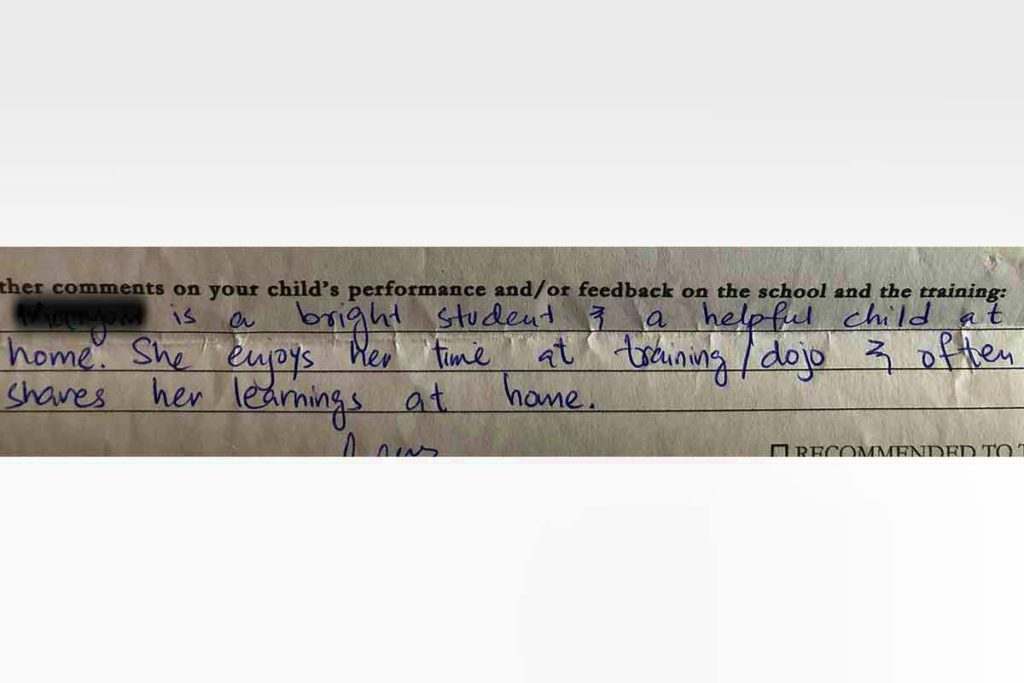 ther comments on your child's performance and/or feedback on the school and the training:
is a bright student & a helpful child at
home. She enjoys her time at training/dojo & often
shares her learnings at home.
RECOMMENDED TO